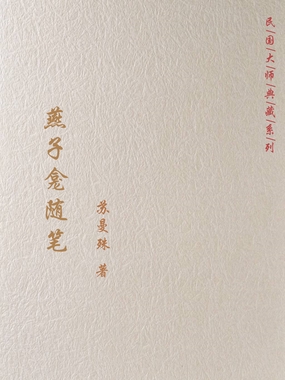 民国大师典藏系列
燕子龛随笔
苏曼殊 著